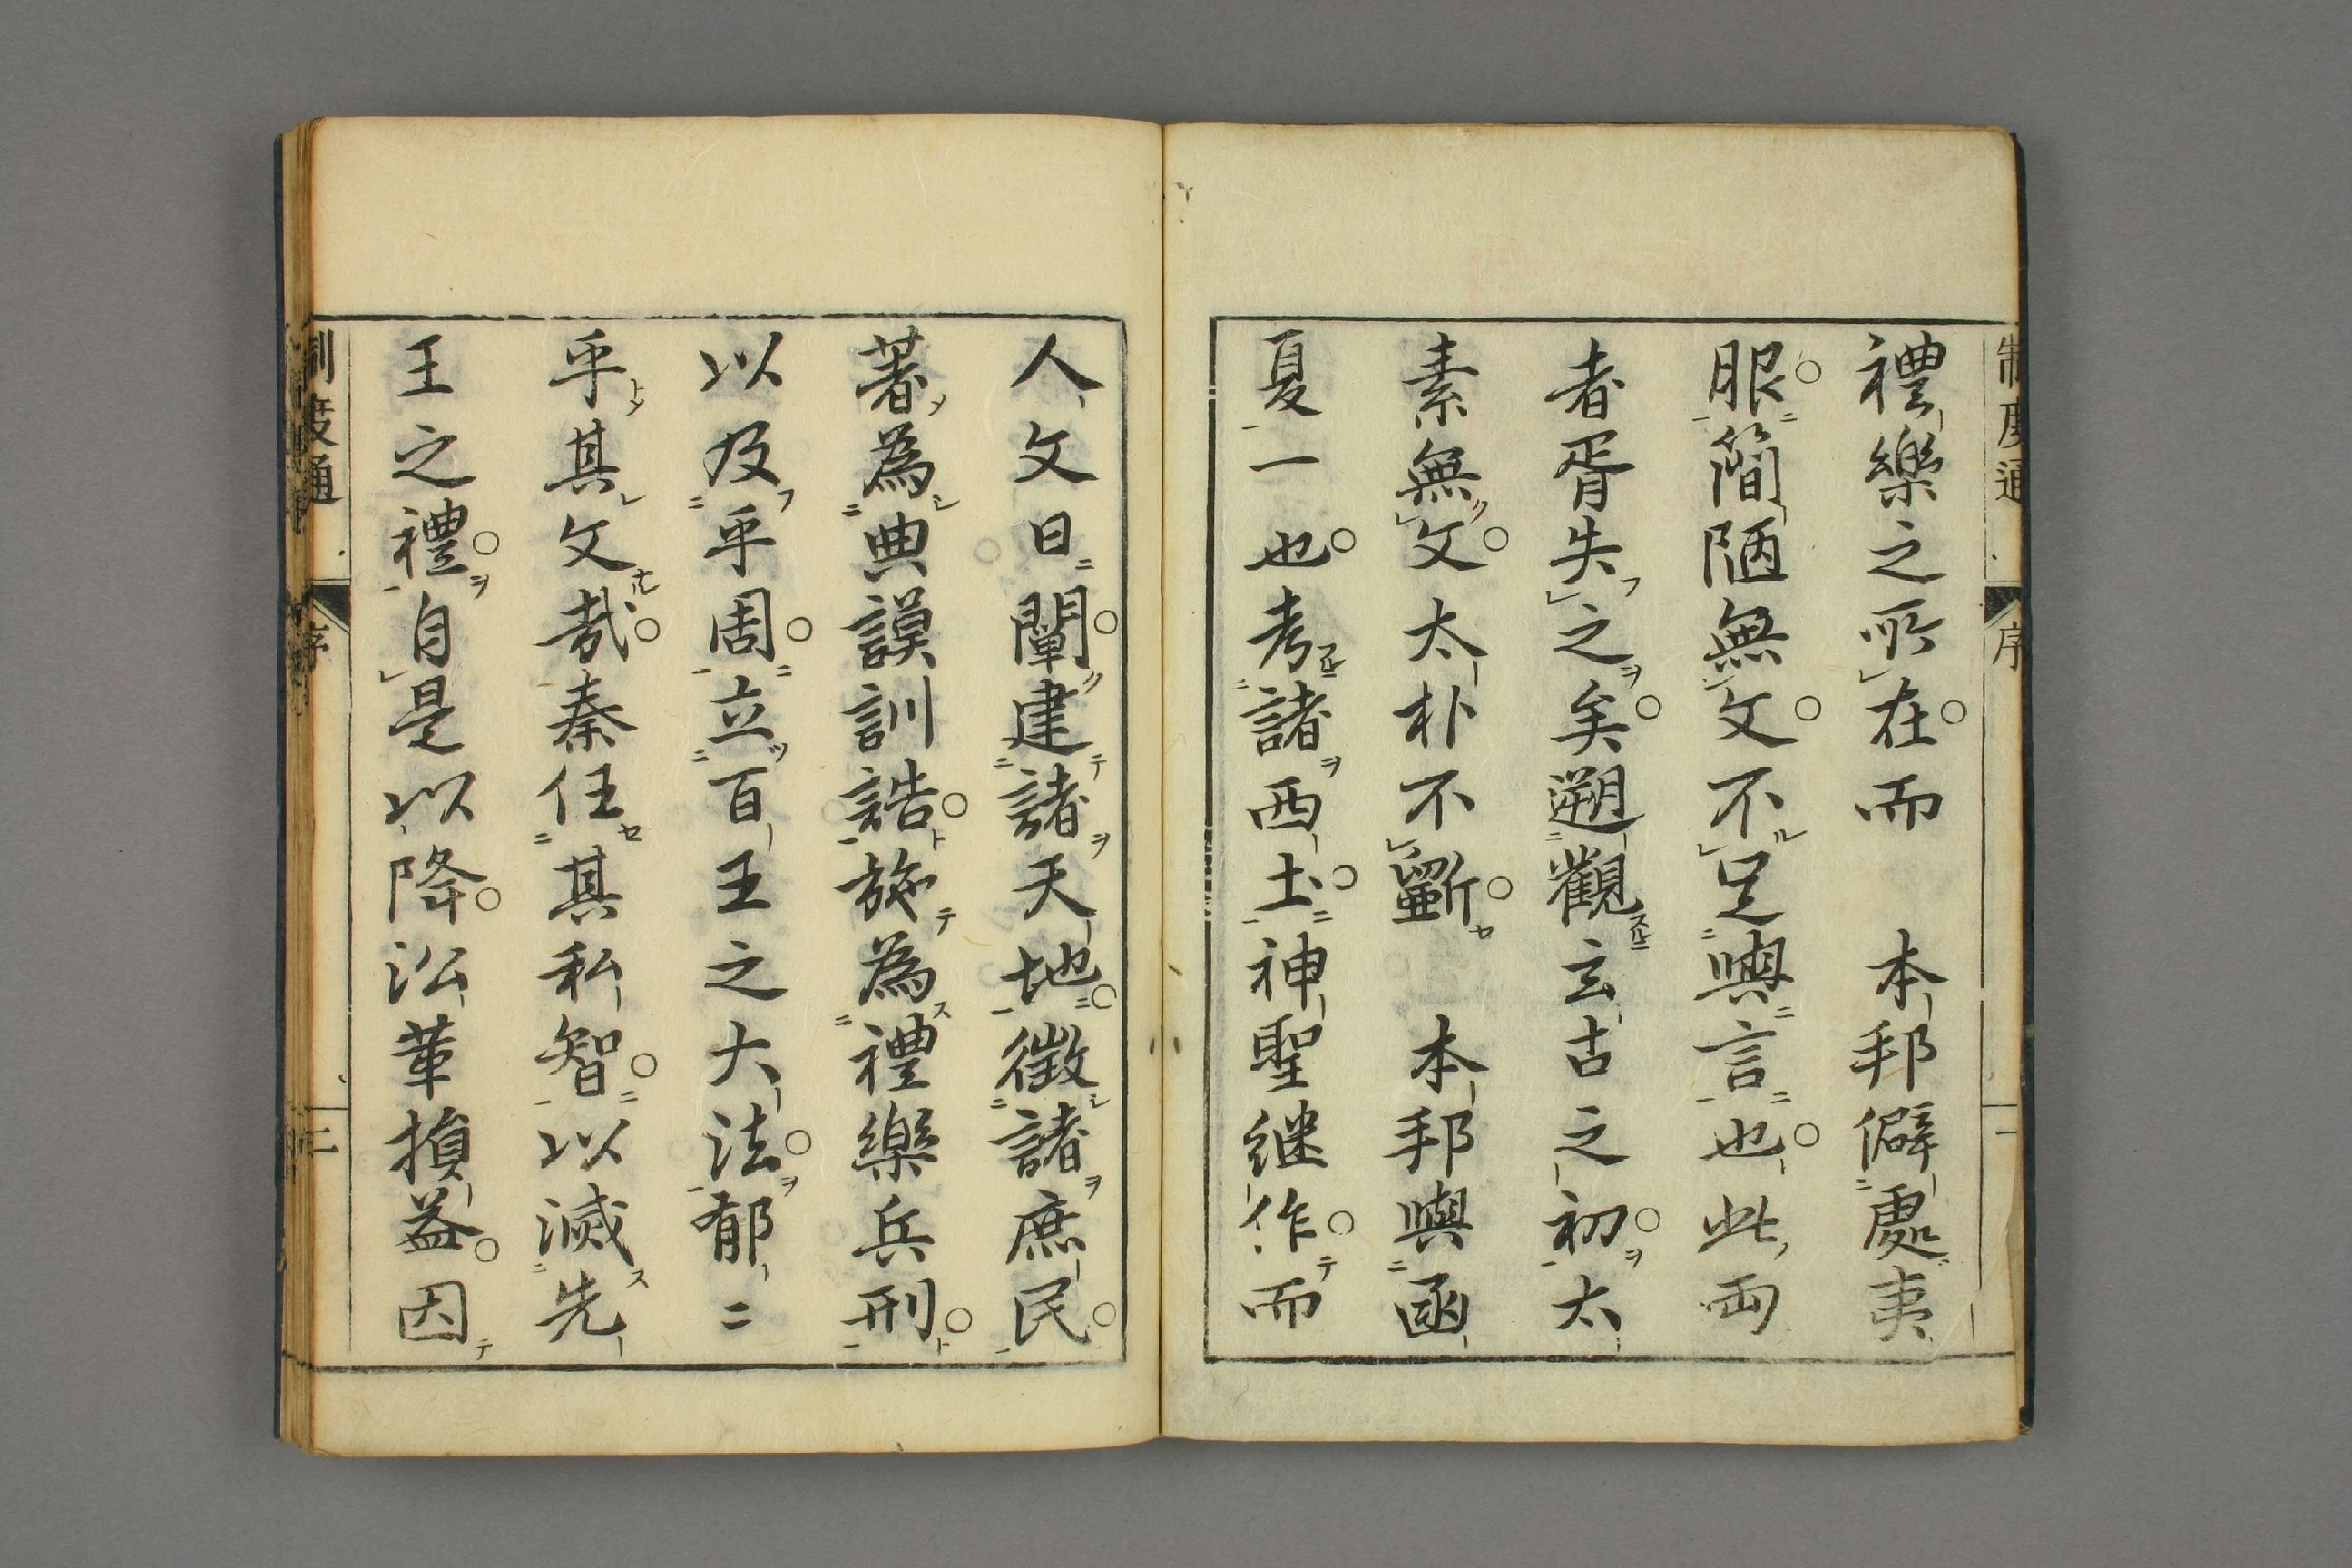 制度通 序 一
禮樂之所在而　本邦僻處夷
服簡陋無文不足與言也此両
者胥失之矣遡觀玄古之初太
素無文太朴不斲　本邦與函
夏一也考諸西土神聖継作而
人文日闡建諸天地徵諸庶民
著為典謨訓誥施為禮樂兵刑
以及乎周立百王之大法郁二
乎其文哉秦任其私智以滅先
王之禮自是以降沿革損益因
制度通 序 二